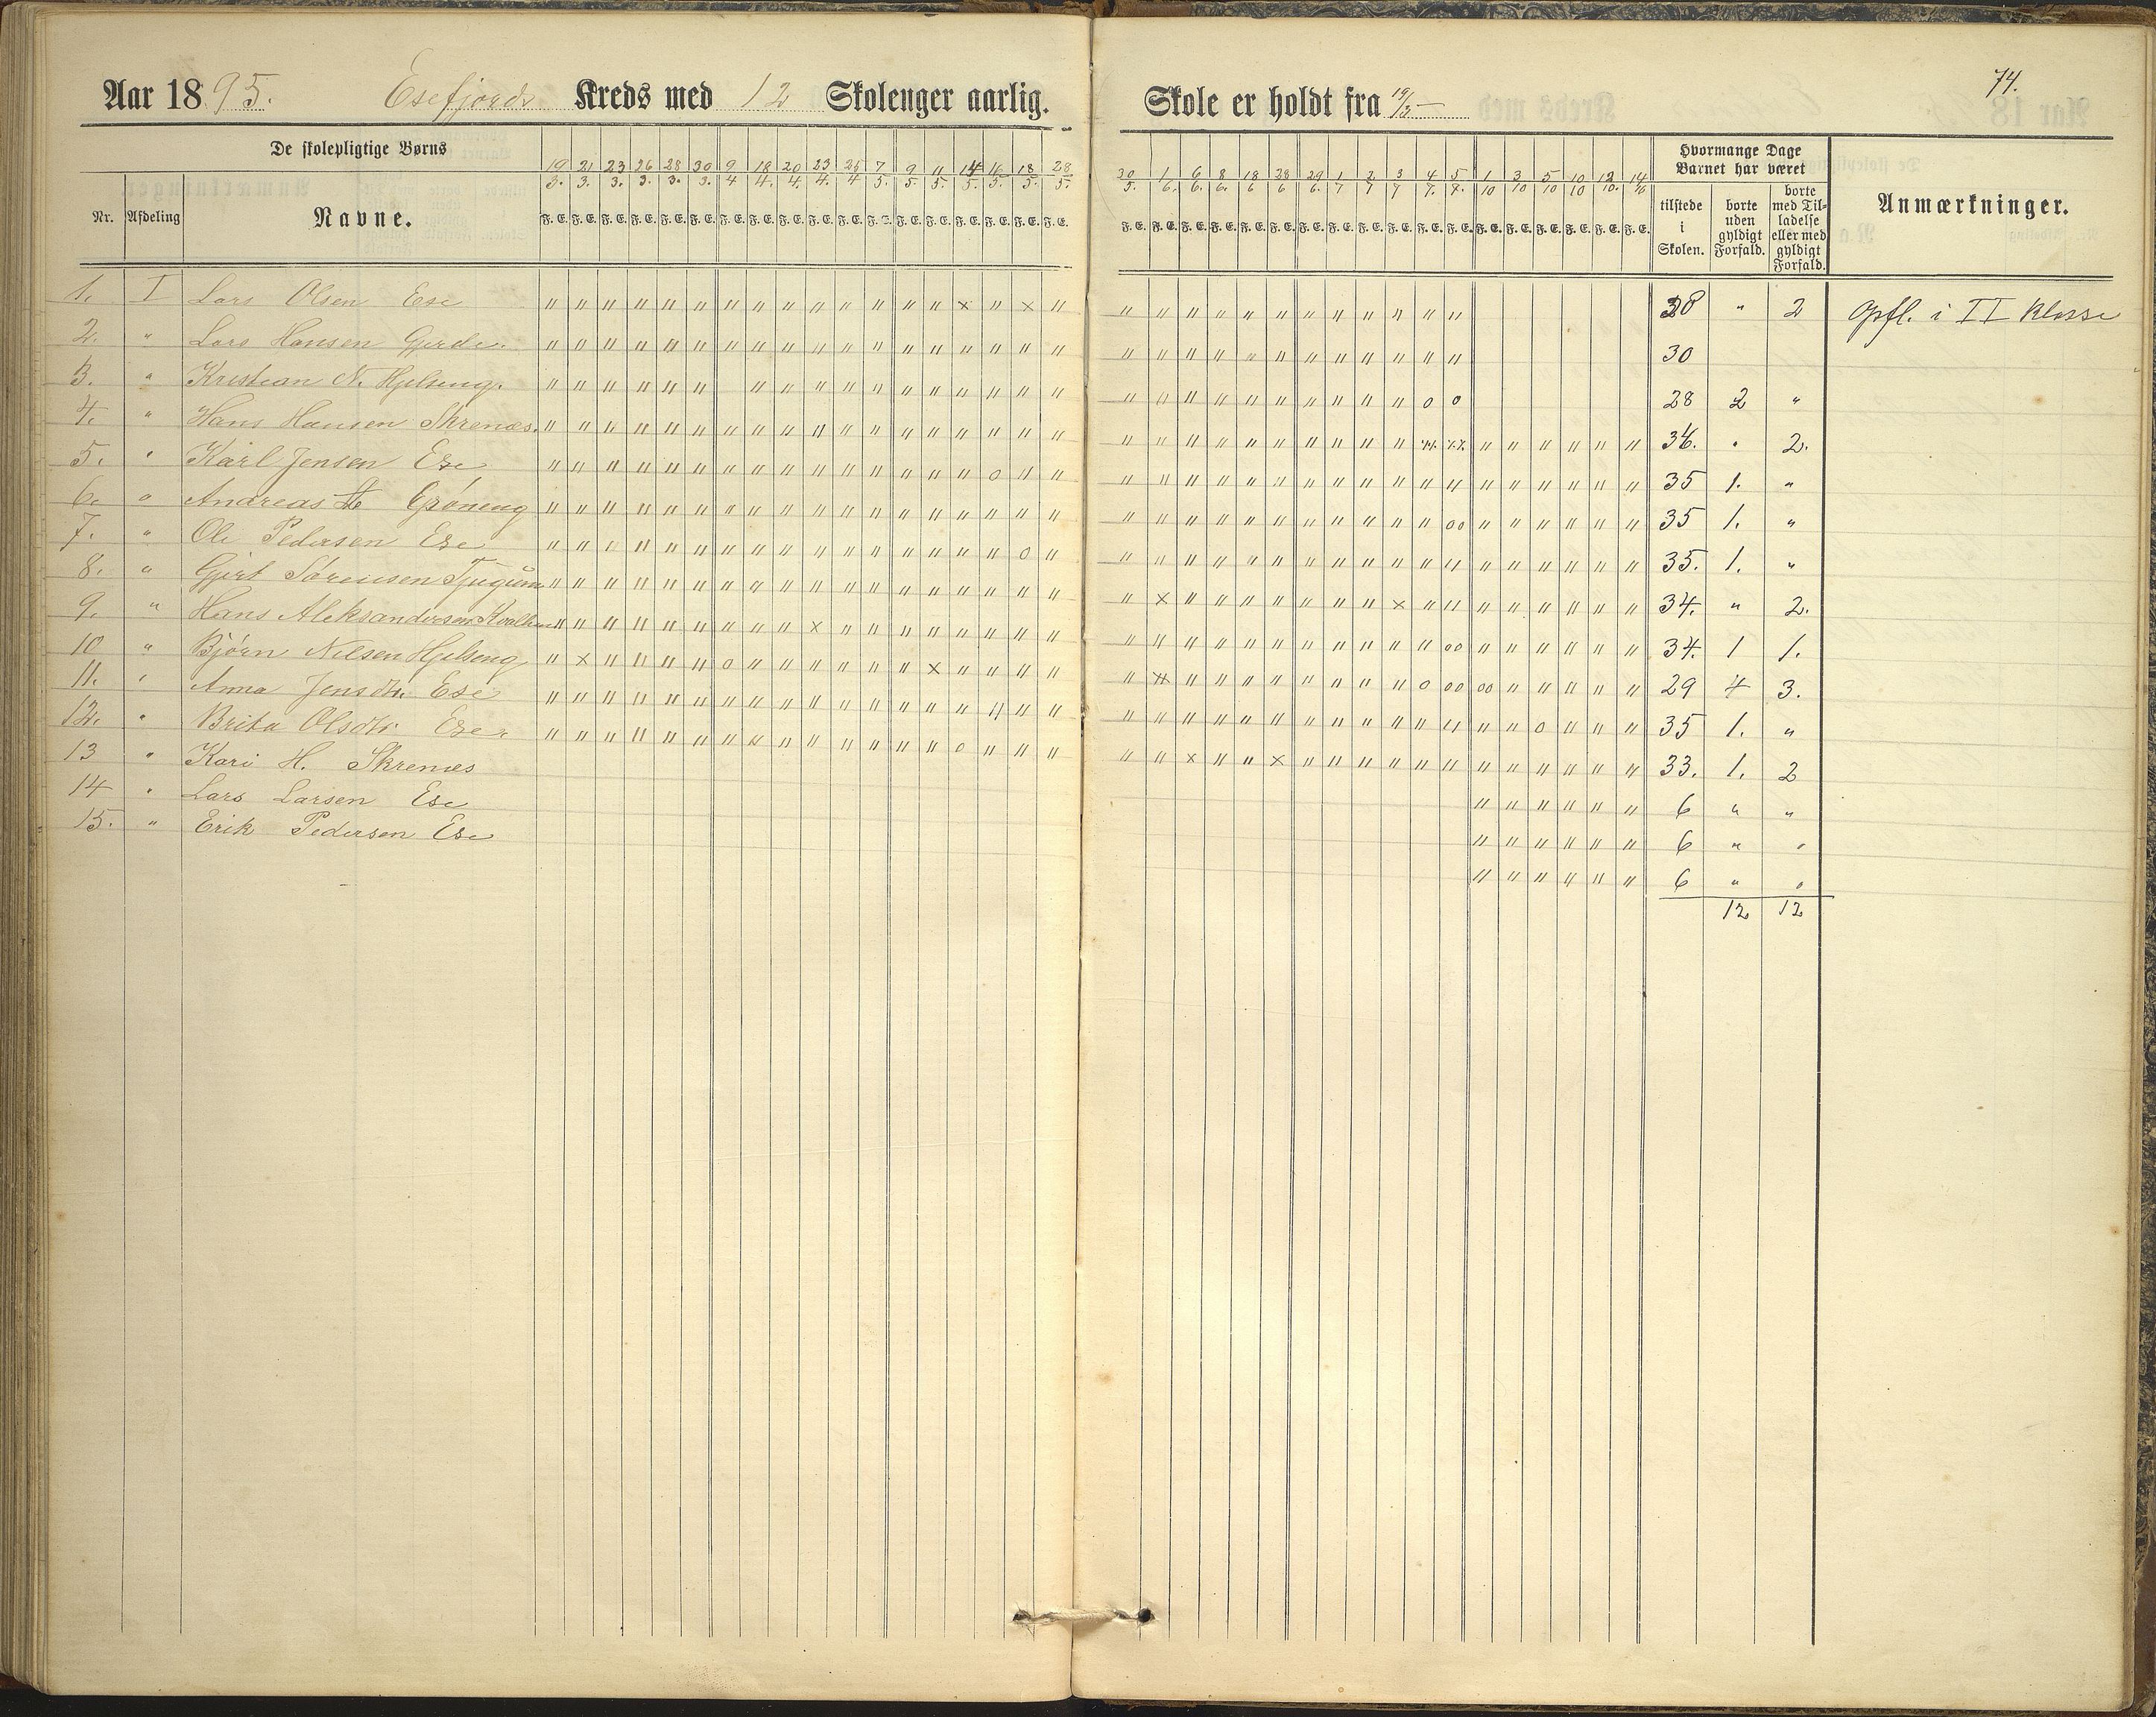 Aar 1895. Esefjords Kreds med 12 Skolenger aarlig.
De skolepligtige Børns
19/3. 21/3. 23/3. 26/3. 28/3. 30/3. 9/4 18/4. 20/4. 23/4. 25/4 7/5. 9/5 11/5. 14/5. 16/5. 18/5. 28/5.
Nr. Afdeling Navne. F. E. F. E. F. E. F. E. F. E. F. E. F. E. F. E. F. E. F. E. F. E. F. E. F. E. F. E. F. E. F. E. F. E. F. E.
1. I Lars Olsen Ese
2. " Lars Hansen Gjerde.
3. " Kristian N. Hjelseng.
4. " Hans Hansen Skrenæs.
5. " Karl Jensen Ese
6. " Andreas Grøneng
7. " Ole Pedersen Ese
8. " Gjert Sørensen Tjugum
9. " Hans Aleksandersen
10 " Bjørn Nilsen Hjelseng
11. " Anna Jensdtr. Ese
12. " Brita Olsdtr. Ese
13 " Kari H. Skrenæs
14 " Lars Larsen Ese
15. " Erik Pedersen Ese
74.
Skole er holdt fra 19/3 —
30/5. 1/6. 6/6. 8/6. 18/6 28/6 29/6. 1/7 2/7 3/7 4/7. 5/7. 1/10 3/10 5/10 10/10 12/10. 14/10
Hvormange Dage Barnet har været
F. E. F. E. F. E. F. E. F. E. F. E. F. E. F. E. F. E. F. E. F. E. F. E. F. E. F. E. F. E. F. E. F. E. F. E.
tilstede i Skolen.
borte uden gyldigt Forfald.
borte med Tilladelse eller med gyldigt Forfald.
Anmærkninger.
28 " 2 Opfl. i II Klasse
30
28 2 "
34. " 2.
35 1. "
35 1. "
35. 1. "
34. " 2.
34. 1 1.
29 4 3.
35 1. "
33. 1. 2
6 " "
6 " "
6 " "
12 12